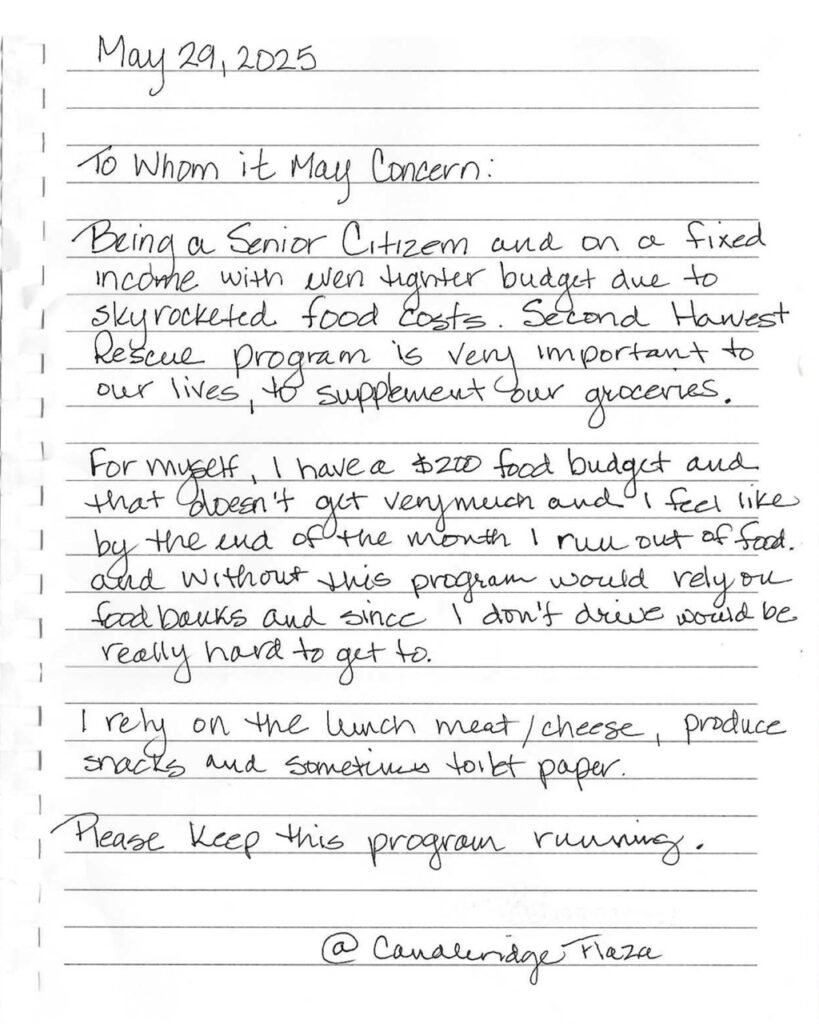 May 29, 2025
To Whom it May Concern:
Being a Senior Citizem and on a fixed
income with even tighter budget due to
skyrocketed food costs. Second Harvest
Rescue program is very important to
our lives, to supplement our groceries.
For myself, I have a $200 food budget and
that doesn't get very much and I feel like
by the end of the month I run out of food.
and without this program would rely on
food banks and since I don't drive would be
really hard to get to.
I rely on the lunch meat/cheese, produce
snacks and sometimes toilet paper.
Please keep this program running.
@ Candleridge Plaza